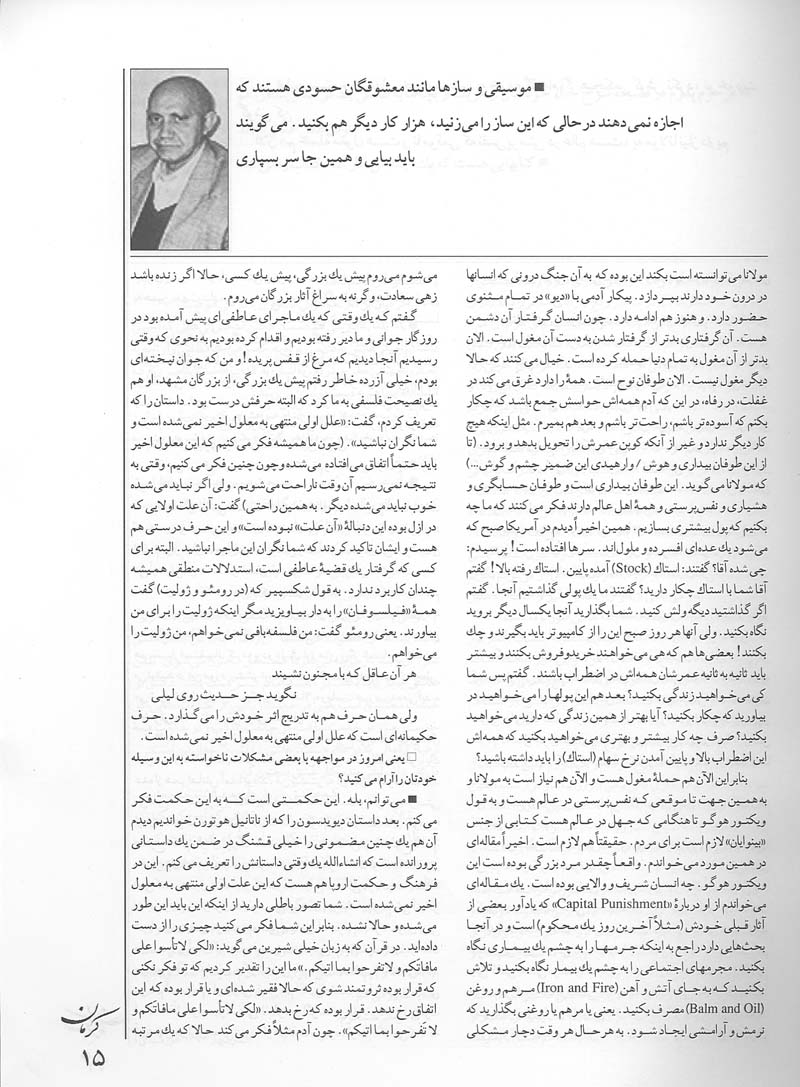 ■ موسیقی و سازها مانند معشوقگان حسودی هستند که
اجازه نمی‌دهند در حالی که این ساز را می‌زنید، هزار کار دیگر هم بکنید. می‌گویند
باید بیایی و همین جا سر بسپاری
مولانا می‌توانسته است بکند این بوده که به آن جنگ درونی که انسانها
در درون خود دارند بپردازد. پیکار آدمی با «دیو» در تمام مثنوی
حضور دارد. و هنوز هم ادامه دارد. چون انسان گرفتار آن دشمن
هست. آن گرفتاری بدتر از گرفتار شدن به دست آن مغول است. الان
بدتر از آن مغول به تمام دنیا حمله کرده است. خیال می‌کنند که حالا
دیگر مغول نیست. الان طوفان نوح است. همهٔ را دارد غرق می‌کند در
غفلت، در رفاه، در این که آدم همه‌اش حواسش جمع باشد که چکار
بکنم که آسوده‌تر باشم، راحت‌تر باشم و بعد هم بمیرم. مثل اینکه هیچ
کار دیگر ندارد و غیر از آنکه کوپن عمرش را تحویل بدهد و برود. (تا
از این طوفان بیداری و هوش / وارهیدی این ضمیر چشم و گوش...)
که مولانا می‌گوید. این طوفان بیداری است و طوفان حسابگری و
هشیاری و نفس‌پرستی و همهٔ اهل عالم دارند فکر می‌کنند که ما چه
بکنیم که پول بیشتری بسازیم. همین اخیراً دیدم در آمریکا صبح که
می‌شود یک عده‌ای افسرده و ملول‌اند. سرها افتاده است! پرسیدم:
چی شده آقا؟ گفتند: استاك (Stock) آمده پایین. استاك رفته بالا! گفتم
آقا شما با استاك چکار دارید؟ گفتند ما یك پولی گذاشتیم آنجا. گفتم
اگر گذاشتید دیگه ولش کنید. شما بگذارید آنجا یکسال دیگر بروید
نگاه بکنید. ولی آنها هر روز صبح این را از کامپیوتر باید بگیرند و چك
بکنند! بعضی‌ها هم که هی می‌خواهند خریدوفروش بکنند و بیشتر
باید ثانیه به ثانیه عمرشان همه‌اش در اضطراب باشند. گفتم پس شما
کی می‌خواهید زندگی بکنید؟ بعد هم این پولها را می‌خواهید در
بیاورید که چکار بکنید؟ آیا بهتر از همین زندگی که دارید می‌خواهید
بکنید؟ صرف چه کار بیشتر و بهتری می‌خواهید بکنید که همه‌اش
این اضطراب بالا و پایین آمدن نرخ سهام (استاك) را باید داشته باشید؟
بنابر این الآن هم حملهٔ مغول هست و الآن هم نیاز است به مولانا و
به همین جهت تا موقعی که نفس‌پرستی در عالم هست و به قول
ویکتور هوگو تا هنگامی که جهل در عالم هست کتابی از جنس
«بینوایان» لازم است برای مردم. حقیقتاً هم لازم است. اخیراً مقاله‌ای
در همین مورد می‌خواندم. واقعاً چقدر مرد بزرگی بوده است این
ویکتور هوگو. چه انسان شریف و والایی بوده است. یك مقاله‌ای
می‌خواندم از او دربارهٔ «Capital Punishment» که یادآور بعضی از
آثار قبلی خودش (مثلاً آخرین روز یك محکوم) است و در آنجا
بحث‌هایی دارد راجع به اینکه جرمها را به چشم یك بیماری نگاه
بکنید. مجرمهای اجتماعی را به چشم یك بیمار نگاه بکنید و تلاش
بکنید که به جای آتش و آهن (Iron and Fire) مرهم و روغن
(Balm and Oil) مصرف بکنید. یعنی یا مرهم یا روغنی بگذارید که
نرمش و آرامشی ایجاد شود. به هر حال هر وقت دچار مشکلی
می‌شوم می‌روم پیش یك بزرگی، پیش یك کسی، حالا اگر زنده باشد
زهی سعادت، وگرنه به سراغ آثار بزرگان می‌روم.
گفتم که یك وقتی که یك ماجرای عاطفی‌ای پیش آمده بود در
روزگار جوانی و ما دیر رفته بودیم و اقدام کرده بودیم به نحوی که وقتی
رسیدیم آنجا دیدیم که مرغ از قفس پریده! و من که جوان نپخته‌ای
بودم، خیلی آزرده خاطر رفتم پیش یك بزرگی، از بزرگان مشهد، او هم
یك نصیحت فلسفی به ما کرد که البته حرفش درست بود. داستان را که
تعریف کردم، گفت: «علل اولی منتهی به معلول اخیر نمی‌شده است و
شما نگران نباشید». (چون ما همیشه فکر می‌کنیم که این معلول اخیر
باید حتماً اتفاق می‌افتاده می‌شده وچون چنین فکر می‌کنیم، وقتی به
نتیجه نمی‌رسیم آن وقت ناراحت می‌شویم. ولی اگر نباید می‌شده
خوب نباید می‌شده دیگر. به همین راحتی) گفت: آن علت اولایی که
در ازل بوده این دنبالهٔ «آن علت» نبوده است» و این حرف درستی هم
هست و ایشان تاکید کردند که شما نگران این ماجرا نباشید. البته برای
کسی که گرفتار یك قضیهٔ عاطفی است، استدلالات منطقی همیشه
چندان کاربرد ندارد. به قول شکسپیر که (در رومئو و ژولیت) گفت
همهٔ «فیلسوفان» را به دار بیاویزید مگر اینکه ژولیت را برای من
بیاورند. یعنی رومئو گفت: من فلسفه‌بافی نمی‌خواهم، من ژولیت را
می‌خواهم.
هر آن عاقل که با مجنون نشیند
نگوید جز حدیث روی لیلی
ولی همان حرف هم به تدریج اثر خودش را می‌گذارد. حرف
حکیمانه‌ای است که علل اولی منتهی به معلول اخیر نمی‌شده است.
□ یعنی امروز در مواجهه با بعضی مشکلات ناخواسته به این وسیله
خودتان را آرام می‌کنید؟
■ می‌توانم، بله. این حکمتی است کـه به این حکمت فکر
می‌کنم. بعد داستان دیویدسون را که از ناتانیل هوتورن خواندیم دیدم
آن هم یك چنین مضمونی را خیلی قشنگ در ضمن یك داستانی
پرورانده است که انشاءالله یك وقتی داستانش را تعریف می‌کنم. این در
فرهنگ و حکمت اروپا هم هست که این علت اولی منتهی به معلول
اخیر نمی‌شده است. شما تصور باطلی دارید از اینکه این باید این طور
می‌شده و حالا نشده. بنابر این شما فکر می‌کنید چیزی را از دست
داده‌اید. در قرآن که به زبان خیلی شیرین می‌گوید: «لکی لاتأسوا علی
مافاتکم و لاتفرحوا بما اتیکم.» ما این را تقدیر کردیم که تو فکر نکنی
که قرار بوده ثروتمند شوی که حالا فقیر شده‌ای و یا قرار بوده که این
اتفاق رخ ندهد. قرار بوده که رخ بدهد. «لکی لاتأسوا علی مافاتکم و
لاتفرحوا بما اتیکم». چون آدم مثلاً فکر می‌کند حالا که یك مرتبه
کرمان
۱۵